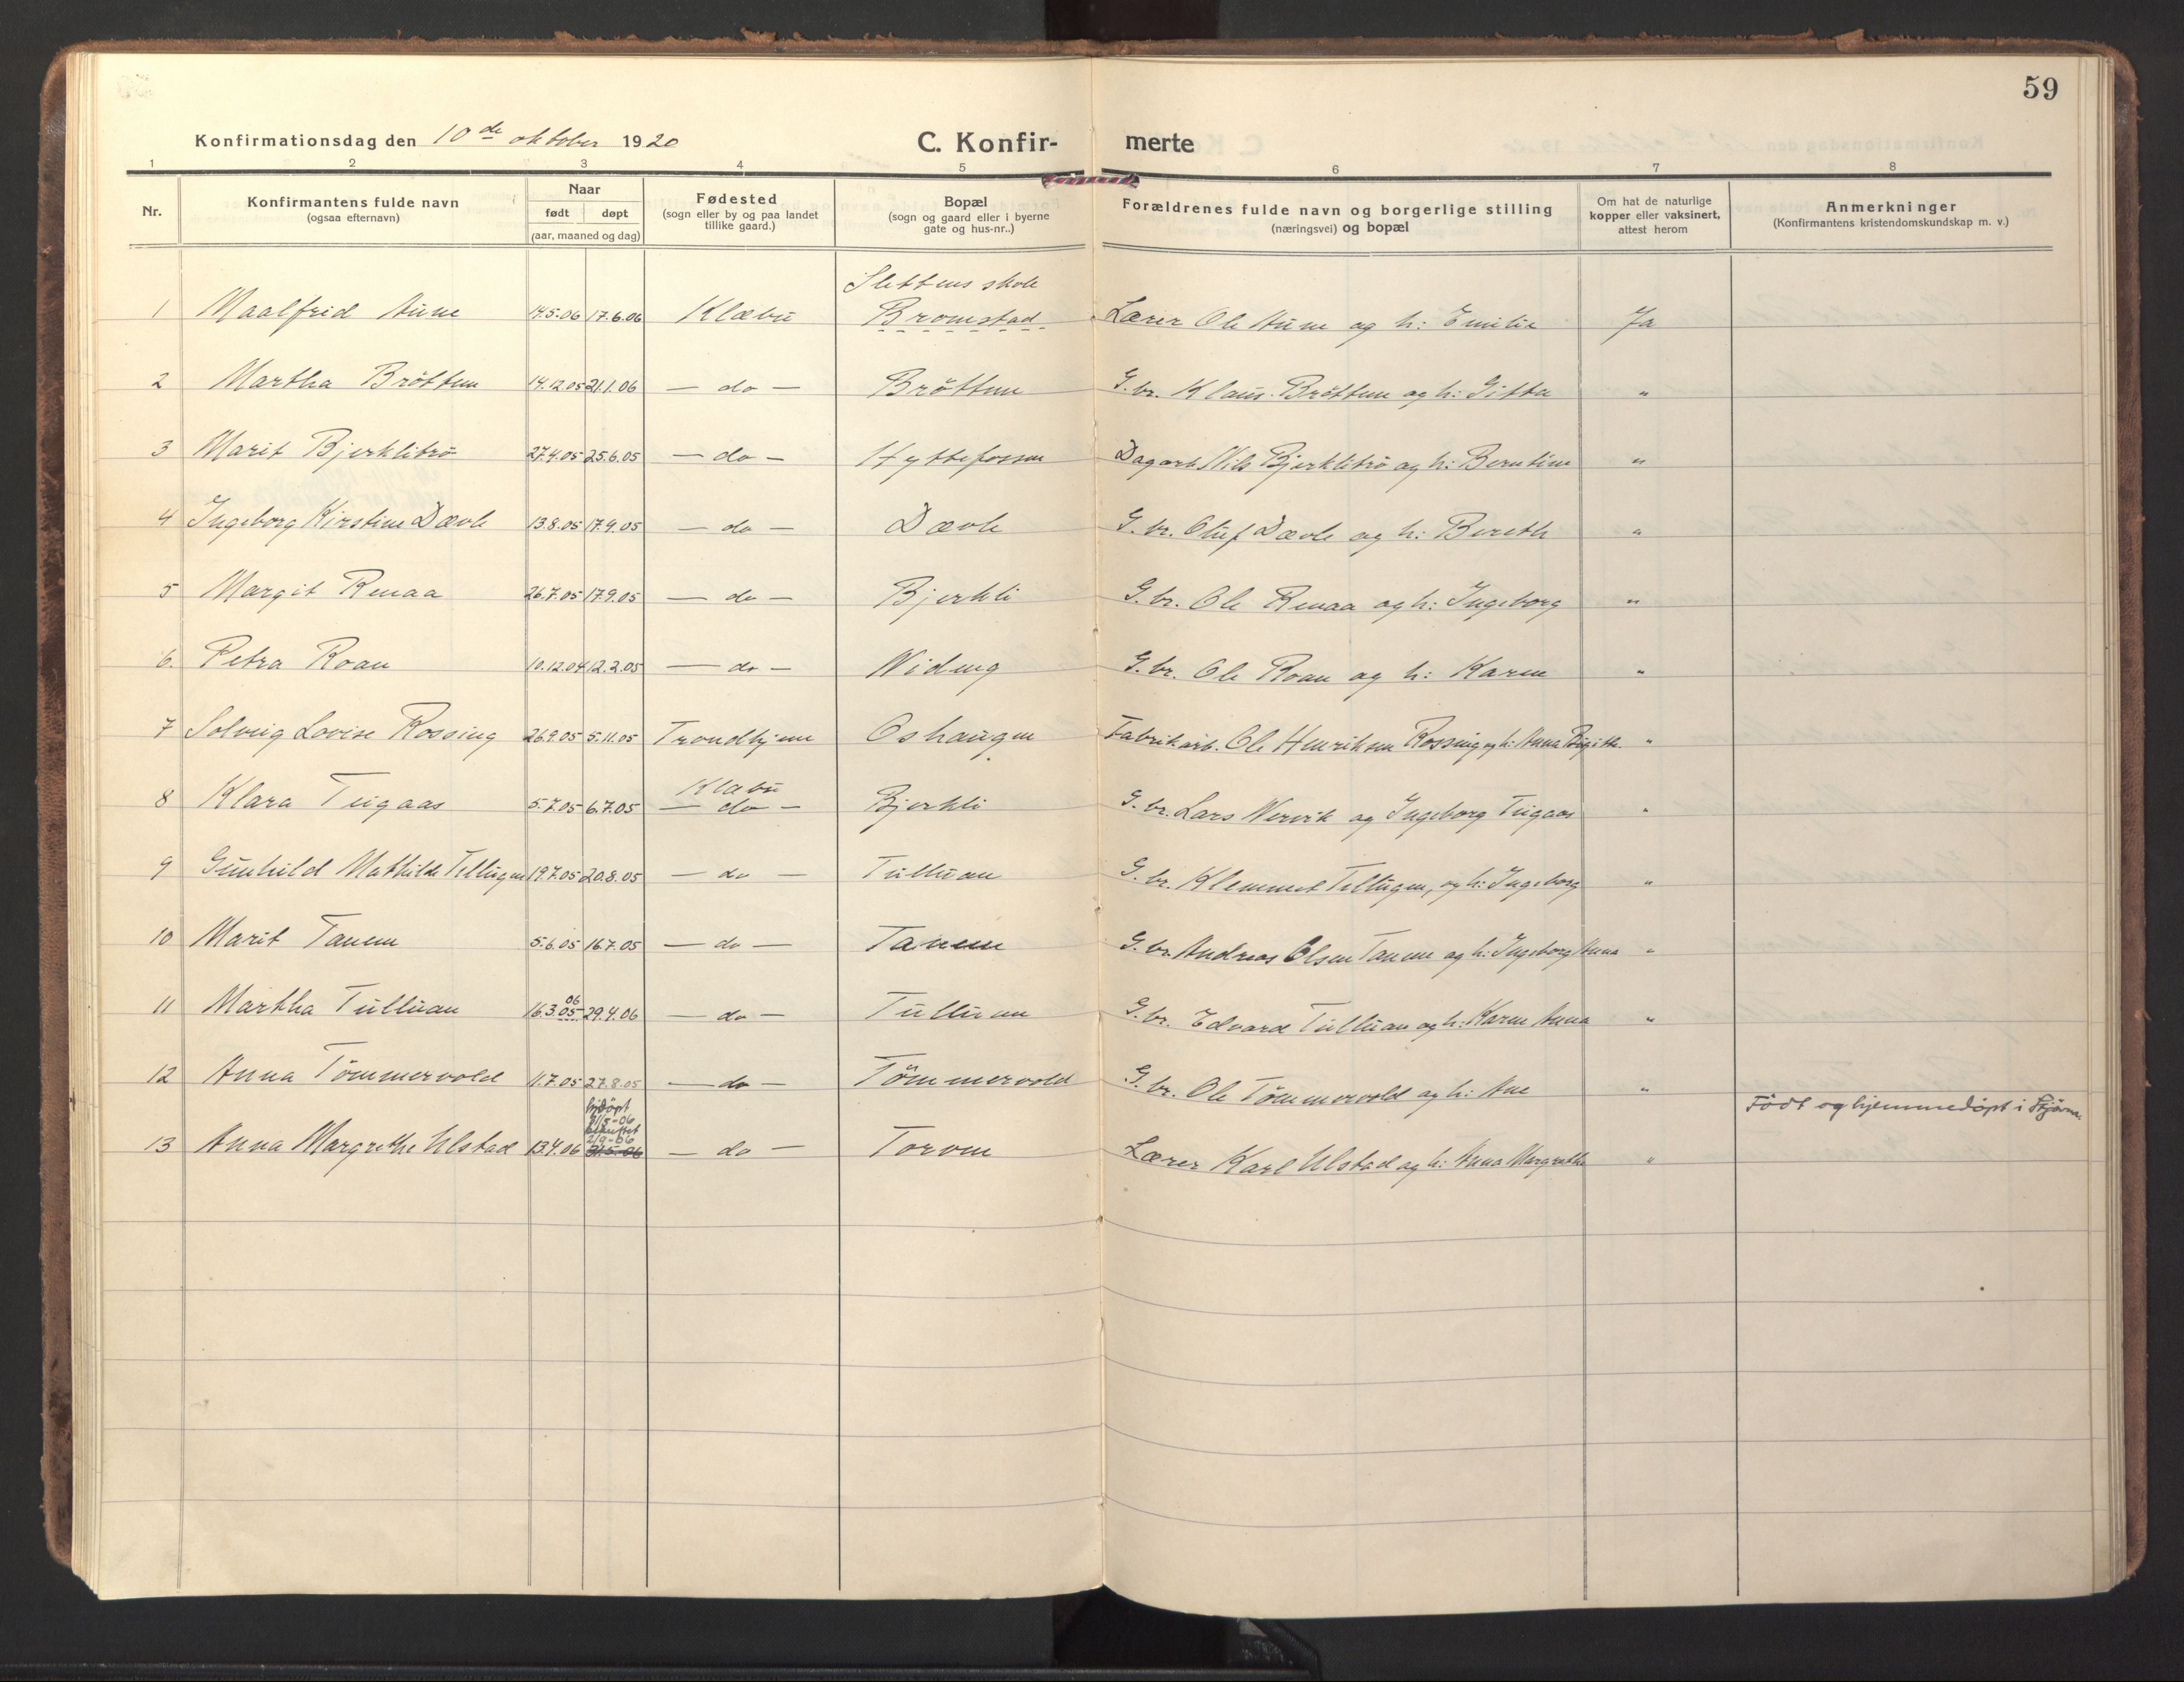 59
Konfirmationsdag den 10de oktober 1920 C. Konfir- merte
1 2 3 4 5 6 7 8
Nr. Konfirmantens fulde navn (ogsaa efternavn) Naar født døpt (aar, maaned og dag) Fødested (sogn eller by og paa landet tillike gaard.) Bopæl (sogn og gaard eller i byerne gate og hus-nr..) Forældrenes fulde navn og borgerlige stilling (næringsvei) og bopæl Om hat de naturlige kopper eller vaksinert, attest herom Anmerkninger (Konfirmantens kristendomskundskap m. v.)
Slettens skole
1 Maalfrid Aune 14.5.06 17.6.06 Klæbu Bromstad Lærer Ole Aune og h: Emilie Ja
2 Martha Bröttem 14.12.05 21.1.06 — do — Bröttem G.br. Klaus Bröttem og h: Gitta "
3 Marit Bjerklitrö 27.4.05 25.6.05 — do — Hyttefossen Dagarb. Nils Bjerklitrö og h: Berntine "
4 Ingeborg Kirstine Dævle 13.8.05 17.9.05 — do — Dævle G.br. Oluf Dævle og h: Bereth "
5 Margit Renaa 26.7.05 17.9.05 — do — Bjerkli G.br. Ole Renaa og h: Ingeborg "
6. Petra Roan 10.12.04 12.2.05 — do — Nideng G.br. Ole Roan og h: Karen "
7 Solveig Lovise Rossing 26.9.05 5.11.05 Trondhjem Oshaugen Fabrikarb. Ole Henriksen Rossing og h: Anna Birgitte "
8 Klara Teigaas 5.7.05 6.7.05 Klæbu — do — Bjerkli G.br. Lars Nervik og Ingeborg Teigaas "
9 Gunhild Mathilde Tellugen 19.7.05 20.8.05 — do — Tulluan G.br. Klemmet Tellugen, og h: Ingeborg "
10 Marit Tanem 5.6.05 16.7.05 — do — Tanem G.br. Andreas Olsen Tanem og h: Ingeborg Anna "
11 Martha Tulluan 16.3.05 06 29.4.06 — do — Tulluan G.br. Edvard Tulluan og h: Karen Anna "
12 Anna Tömmervold 11.7.05 27.8.05 — do — Tömmervold G.br. Ole Tömmervold og h: Ane "
hjdöpt
31/5-06
2/9-06
13 Anna Margrethe Ulstad 13.4.06 31.5.06 — do — Torven Lærer Karl Ulstad og h: Anna Margrethe " Födt og hjemmedöpt i Stjørna